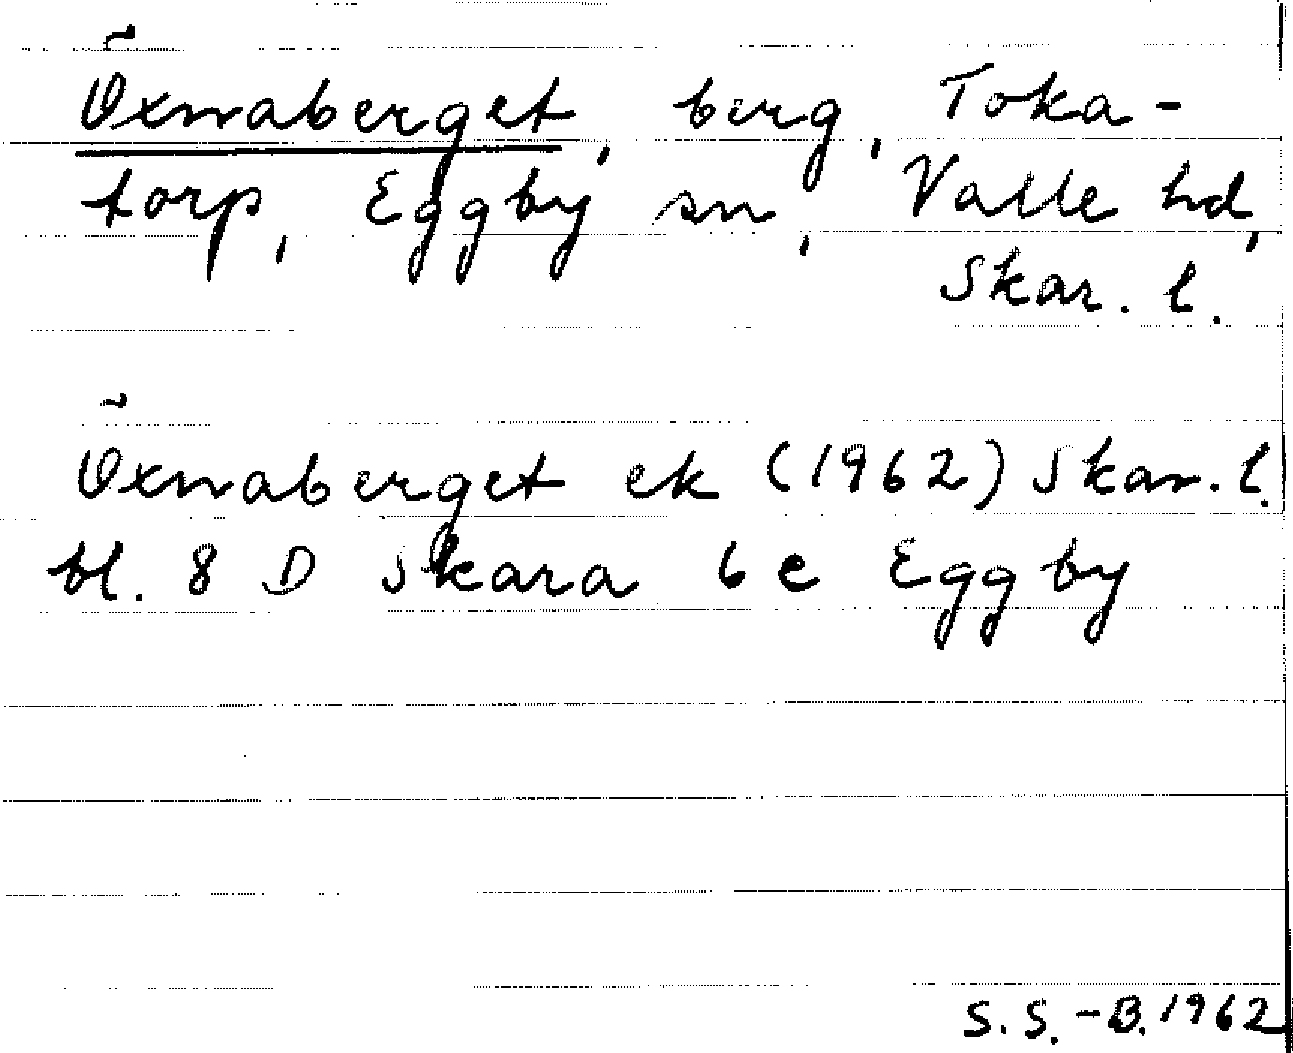 Öxnaberget, berg, Toka-
torp, Eggby sn, Valle hd,
Skar. l.
Öxnaberget ek (1962) Skar. l.
bl. 8 D Skara 6 e Eggby
S.S.-B. 1962